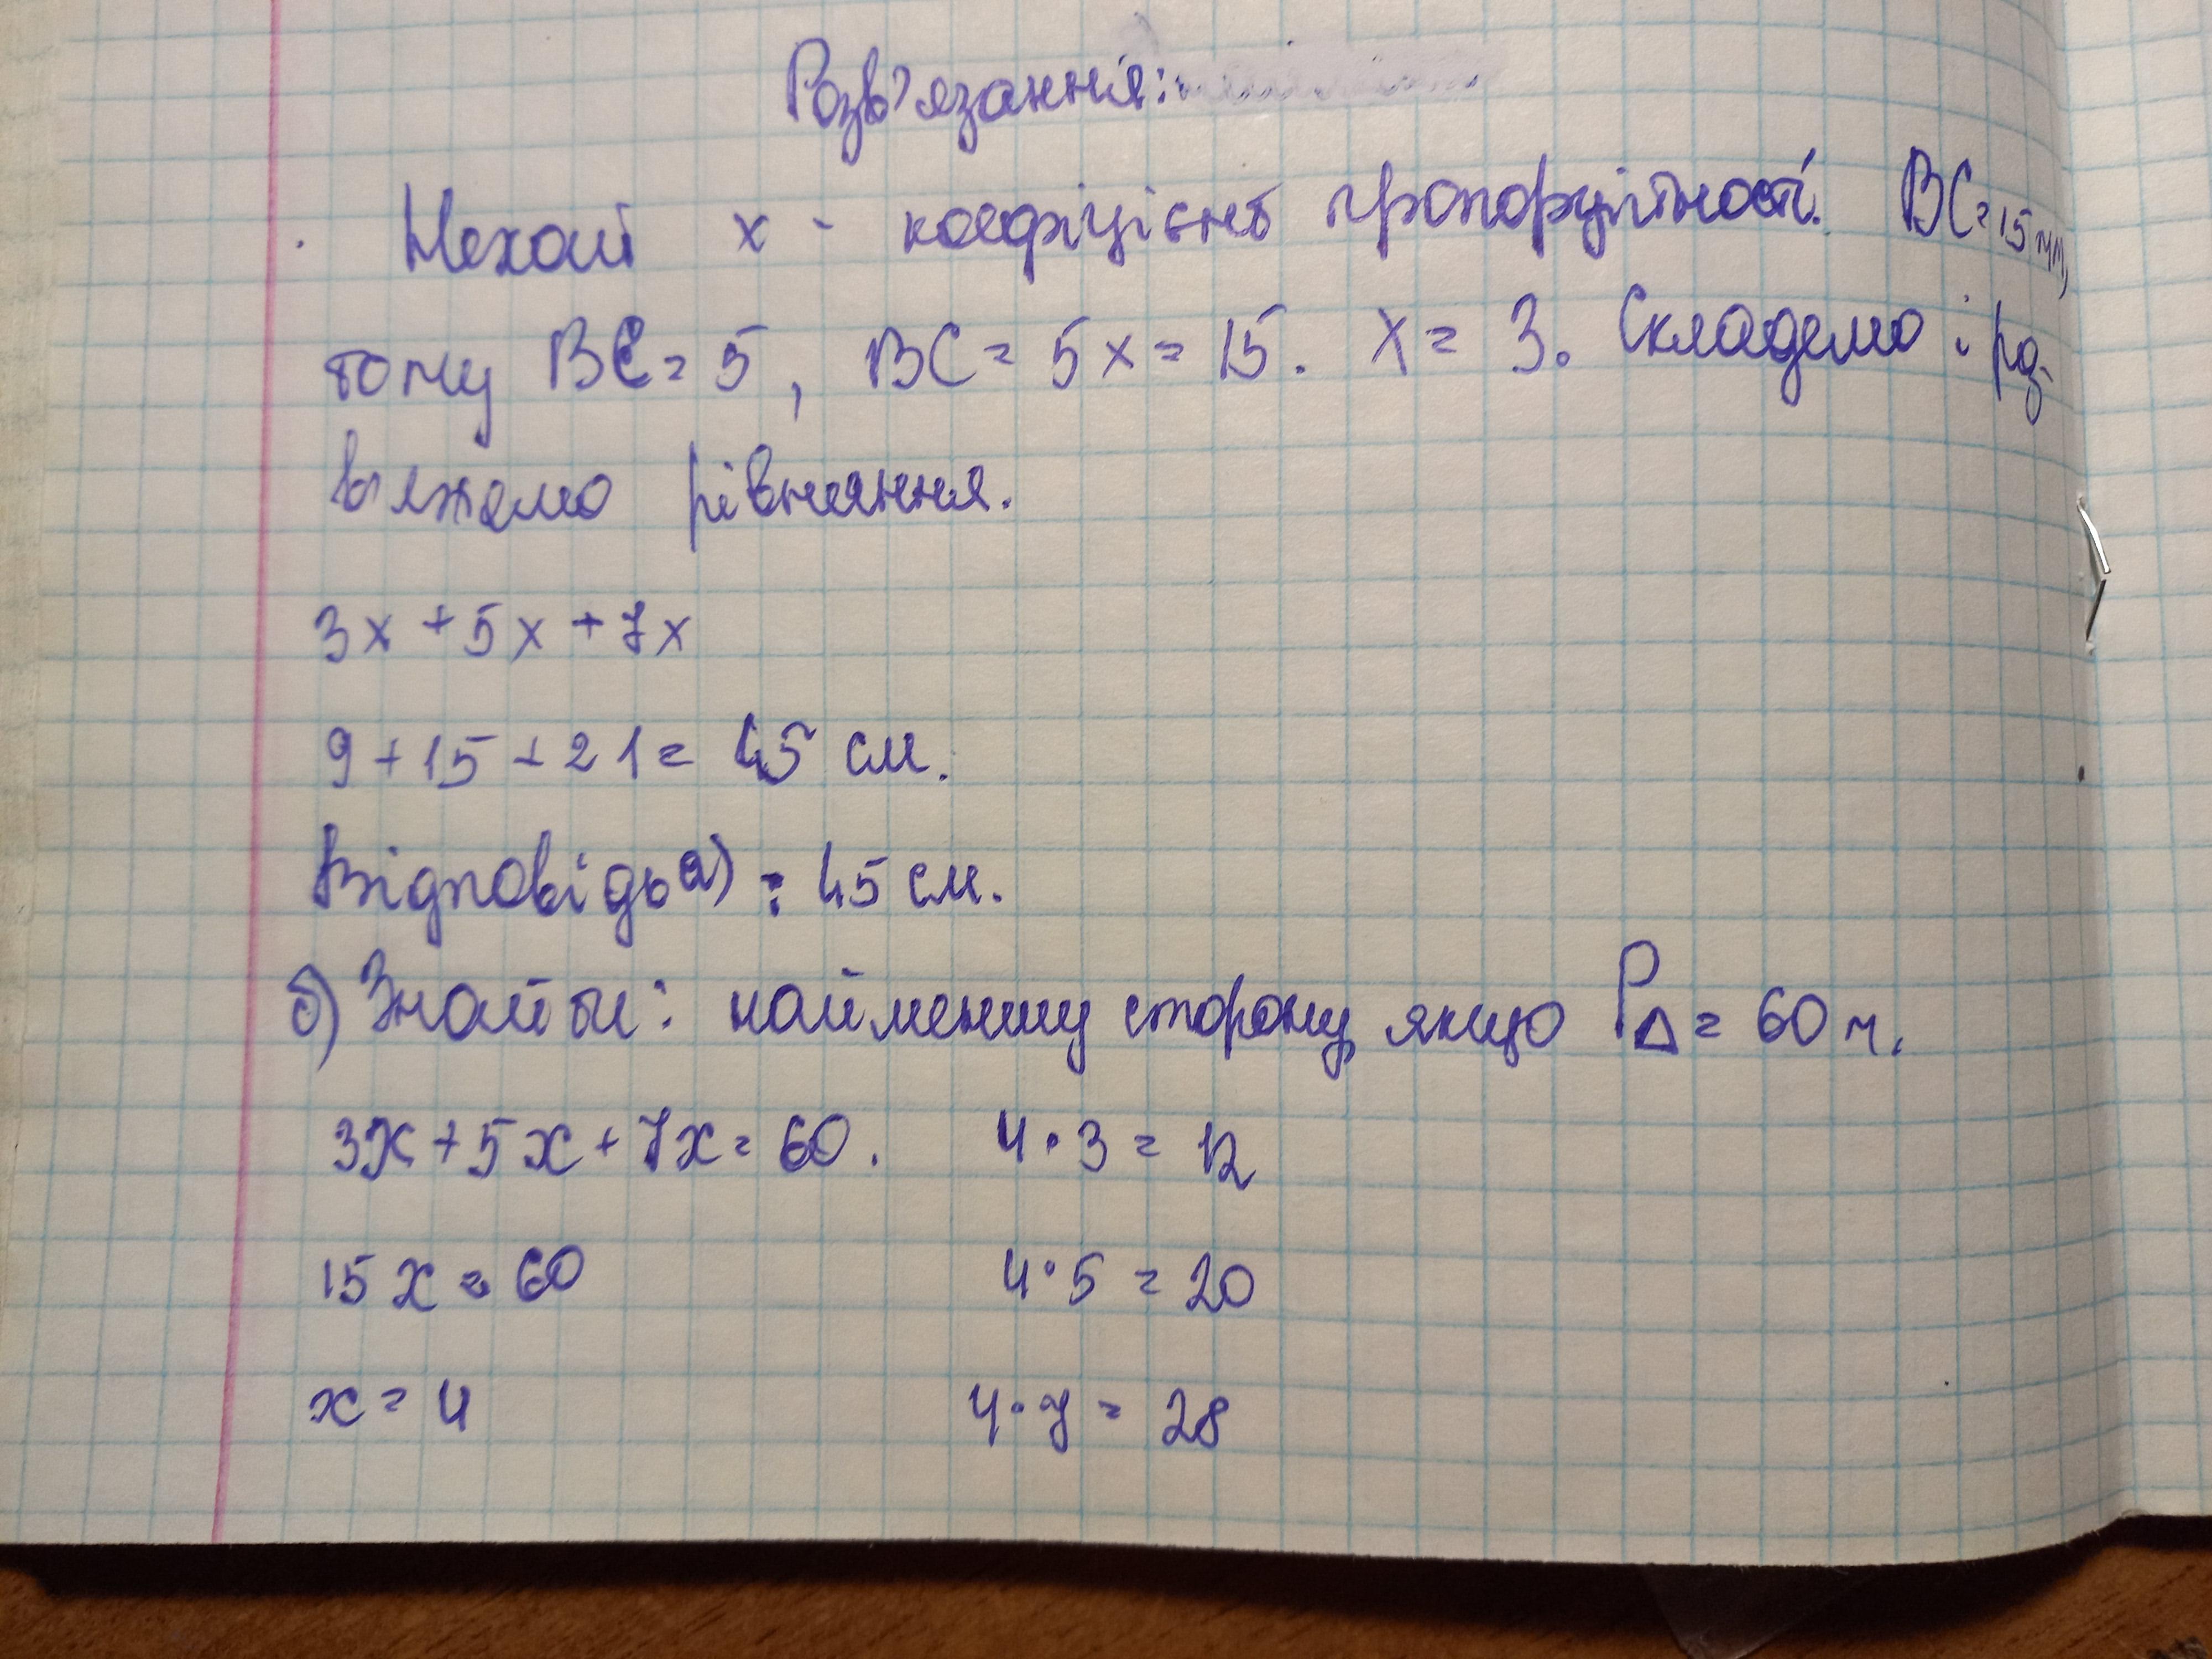 Розв'язання:
Нехай х - коефіцієнт пропорційності. ВС = 15 мм,
тому ВС = 5, ВС = 5х = 15. Х = 3. Складемо і роз-
вяжемо рівняння.
3х + 5х + 7х
9 + 15 + 21 = 45 см.
Відповідь а) : 45 см.
б) Знайти: найменшу сторону якщо P∆ = 60 м.
3х + 5х + 7х = 60. 4 · 3 = 12
15х = 60 4 · 5 = 20
х = 4 4 · 7 = 28